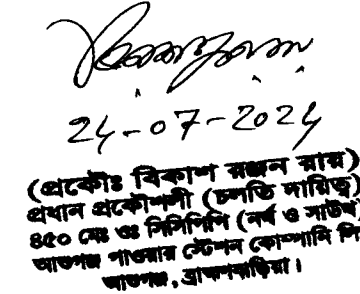 24-07-2024
(প্রকৌঃ বিকাশ রঞ্জন রায়)
প্রধান প্রকৌশলী (চলতি দায়িত্ব)
৪৫০ মেঃ ওঃ সিসিপিপি (নর্থ ও সাউথ)
আশুগঞ্জ পাওয়ার স্টেশন কোম্পানি লি
আশুগঞ্জ, ব্রাহ্মণবাড়িয়া।